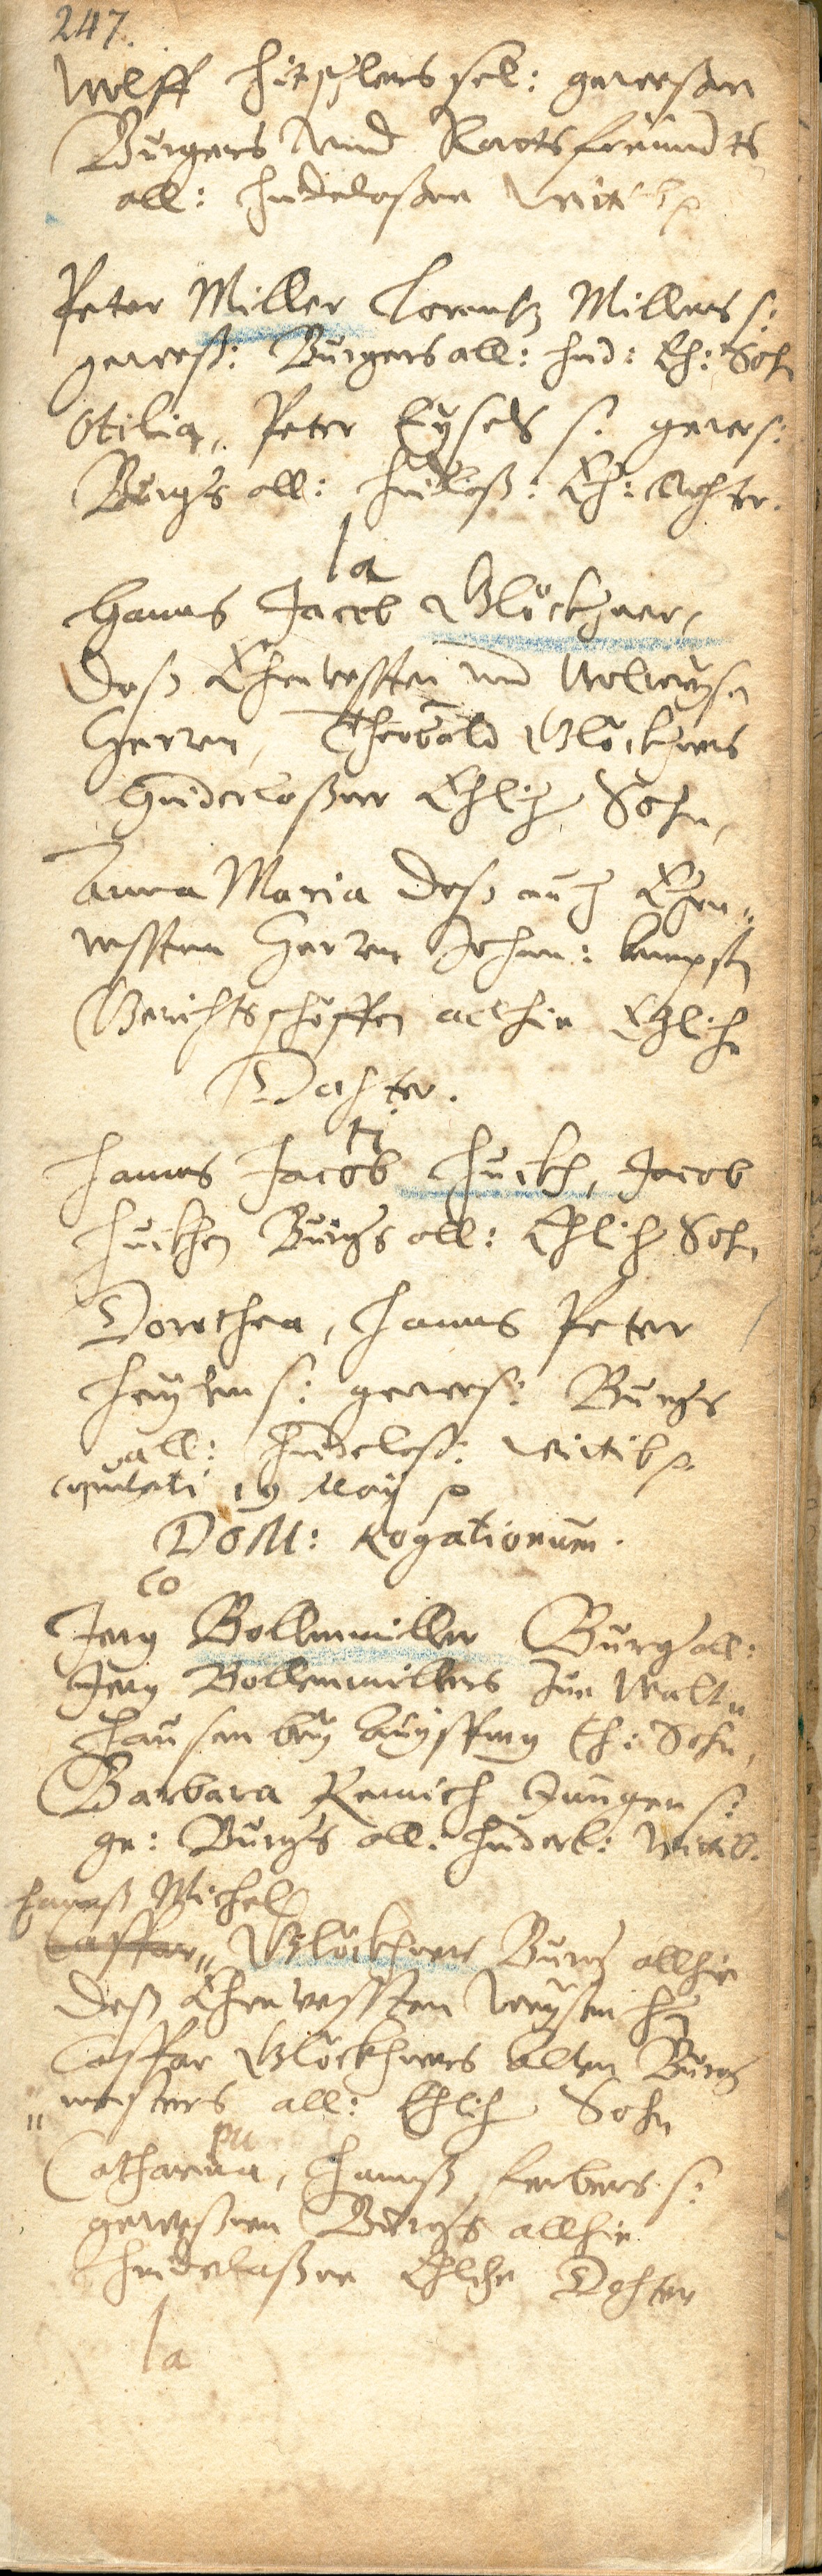 247.
Wolff sel: gewesßen
Burgers und Raatsfreundts
all: hinderlaßene Wittib
Peter Miller Lorentz Millers s:
geweß: Burgers all: hind: Eh: Sohn
Otilia, Peter Eysels s: gewes:
Burgrs all: hinderlaß: Eh: dochter.
la
Hanns Jacob Glöckhner,
deß Ehrnvesten und Wolweysen
Herren, Theobald Glöckhners
hinderlaßner Ehlich Sohn,
Anna Maria deß auch Ehrn„
vesten Herren Johan:
Gerichtsschöffen allhie Ehliche
Dochter.
Hanns Jacob Huckh, Jacob
Huckhen Burgrs all: Ehlich Sohn
Dorothea, Hanns Peter
s: gewes: Burgrs
all: hinderlaß: Wittib
copulati 19 May
DOM: Rogationum.
co
Jerg Bollenmiller Burgr all:
Jerg Bollenmillers zue Walt„
hausen bey Eh: Sohn,
Barbara Remich Jungen s:
ge: Burgrs all: hinderl: Wittib.
Hanß Michel
Casspar„ Glöckhner Burgr allhie
deß Ehrnvesten Weysen Hn
Casspar Glöckhners Alten Burgr
„meisters all: Ehlich Sohn
Catharina, Hannß Ferbers s:
geweßnen Burgrs allhie
hinderlaßne Ehliche Dochter
la